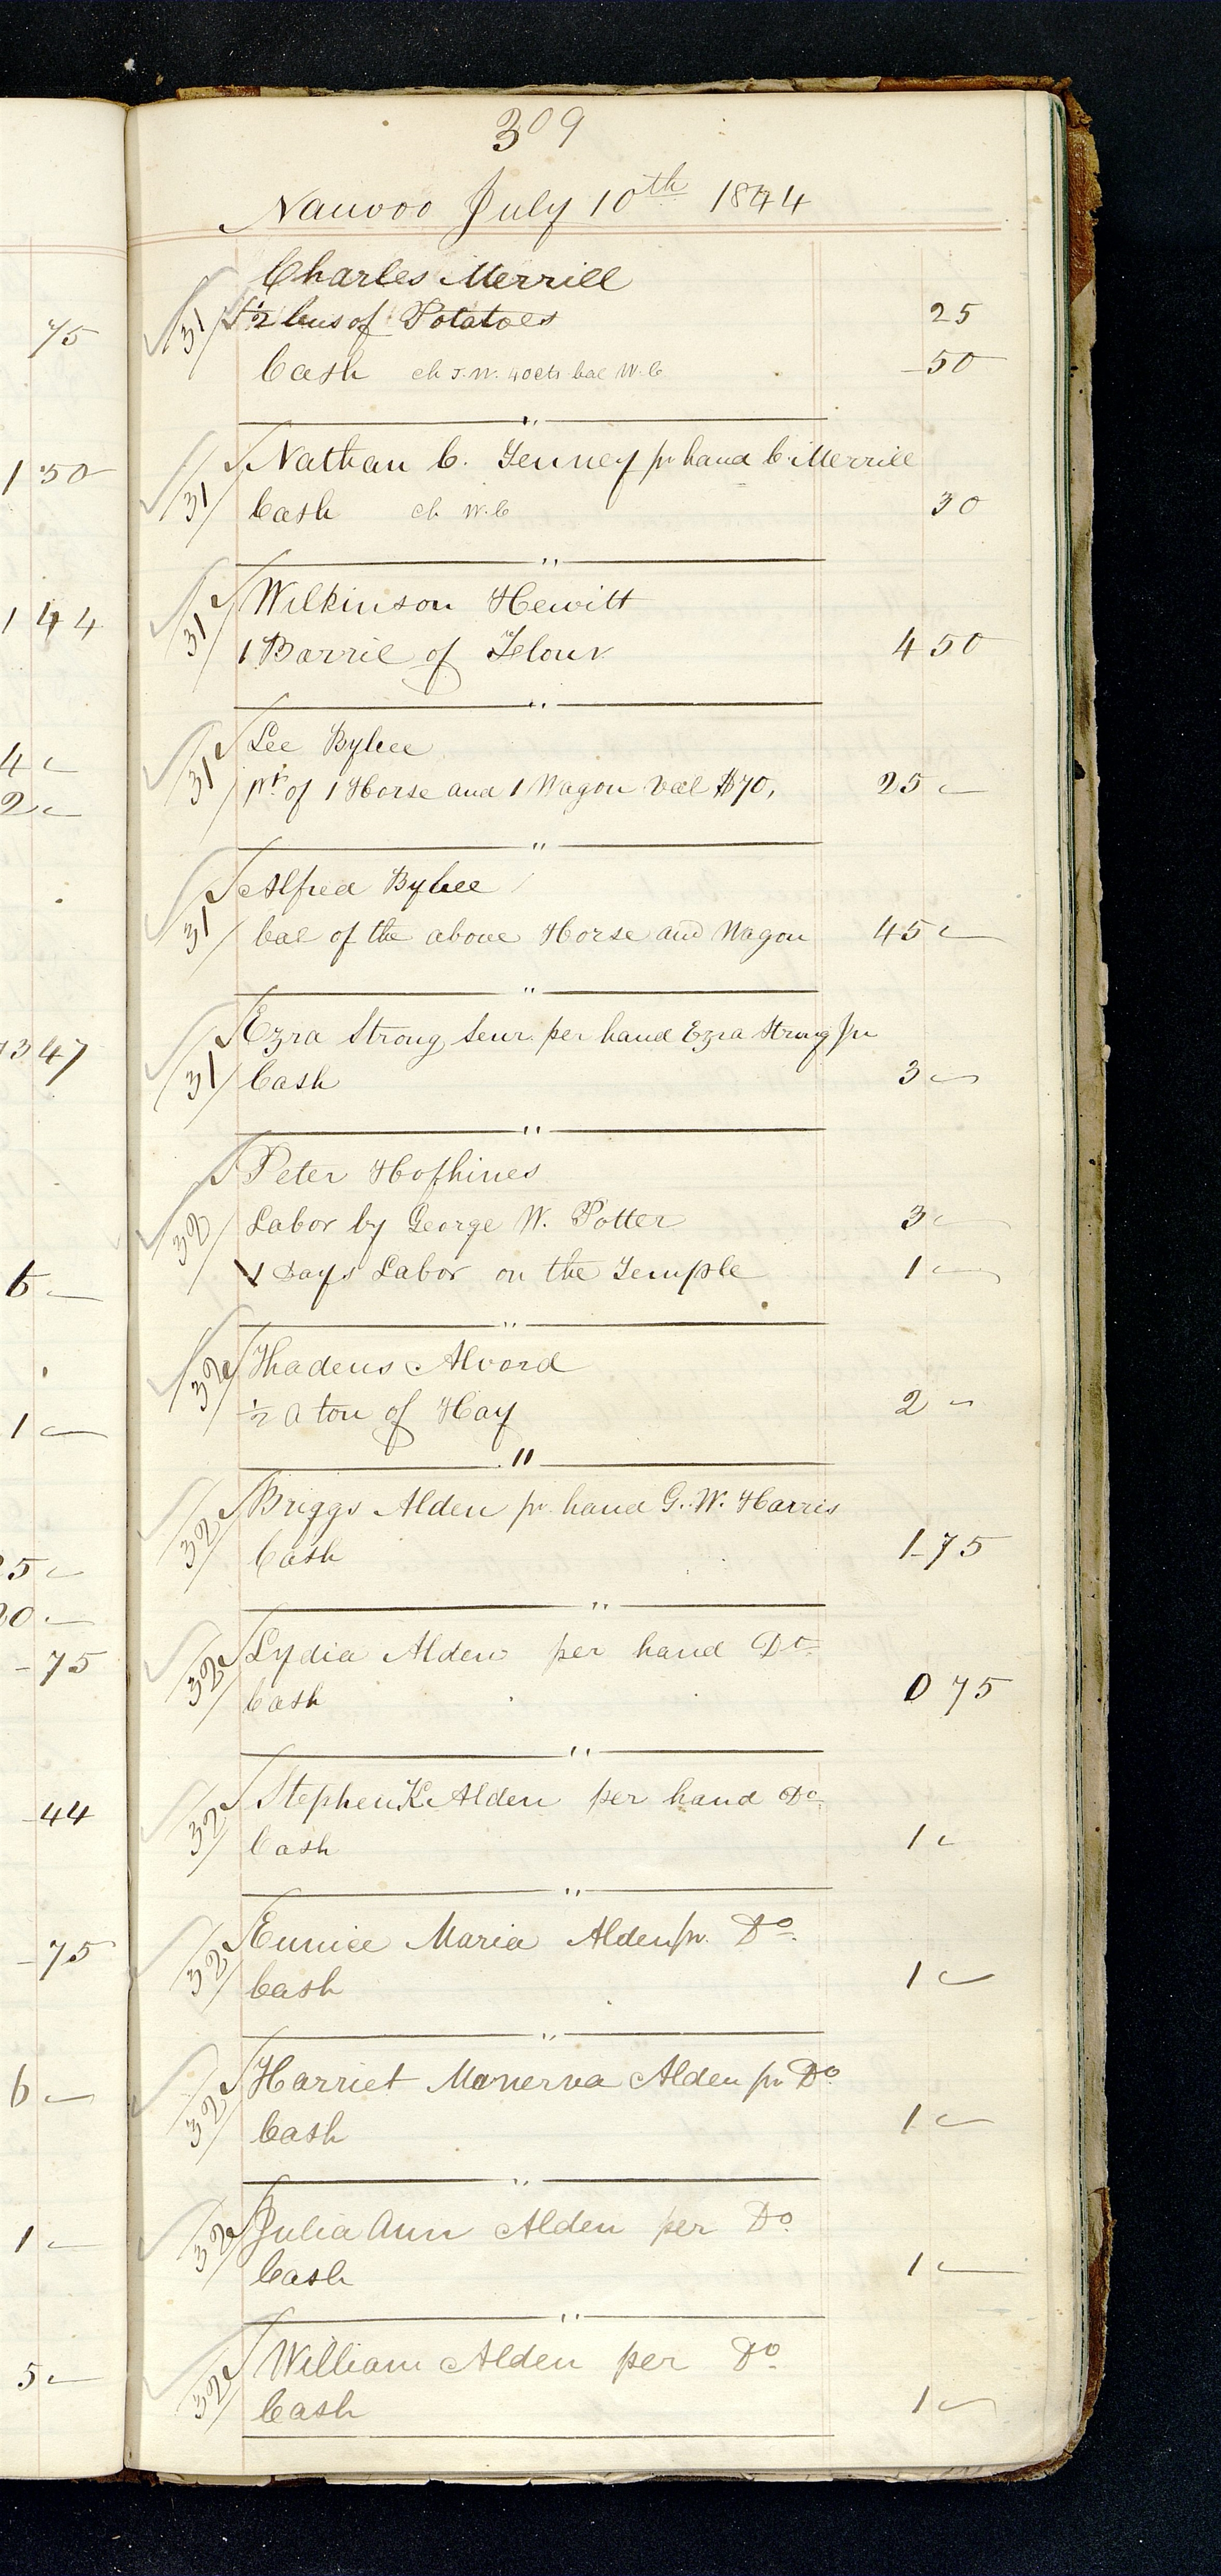 309
Nauvoo July 10th 1844
75
150
144
4 -
2 -
347
5 -
1 -
5 -
0 -
-75
-44
-75
6 -
1 -
5 -
Charles Merrill
31 ½ bus of Potatoes 25
Cash ch J. W. 40cts bal W. C -50
"
Nathan C. Tenney pr hand C. Merrill
31 Cash ch W. C 30
"
Wilkinson Hewitt
31 1 Barrie of Flour 4 50
"
Lee Bybee
31 prt of 1 Horse and 1 Wagon val $70, 25 -
"
Alfred Bybee
31 bal of the above Horse and Wagon 45 -
"
Ezra Strong Senr. per hand Ezra Strong Jn
31 Cash 3 -
"
Peter Hofhines
32 Labor by George W. Potter 3 -
1 Days Labor on the Temple 1 -
"
32 Thadeus Alvord
½ a ton of Hay 2 -
"
Briggs Alden pr hand G. W. Harris
32 Cash 1-75
"
Lydia Alden per hand Do
32 Cash 0 75
"
Stephen K Alden per hand Do
32 Cash 1 -
"
Eunice Maria Alden pr. Do.
32 Cash 1 -
"
Harriet Manerva Alden pr Do
32 Cash 1 -
"
Julia Ann Alden per Do.
32 Cash 1 -
"
William Alden per Do.
32 Cash 1 -